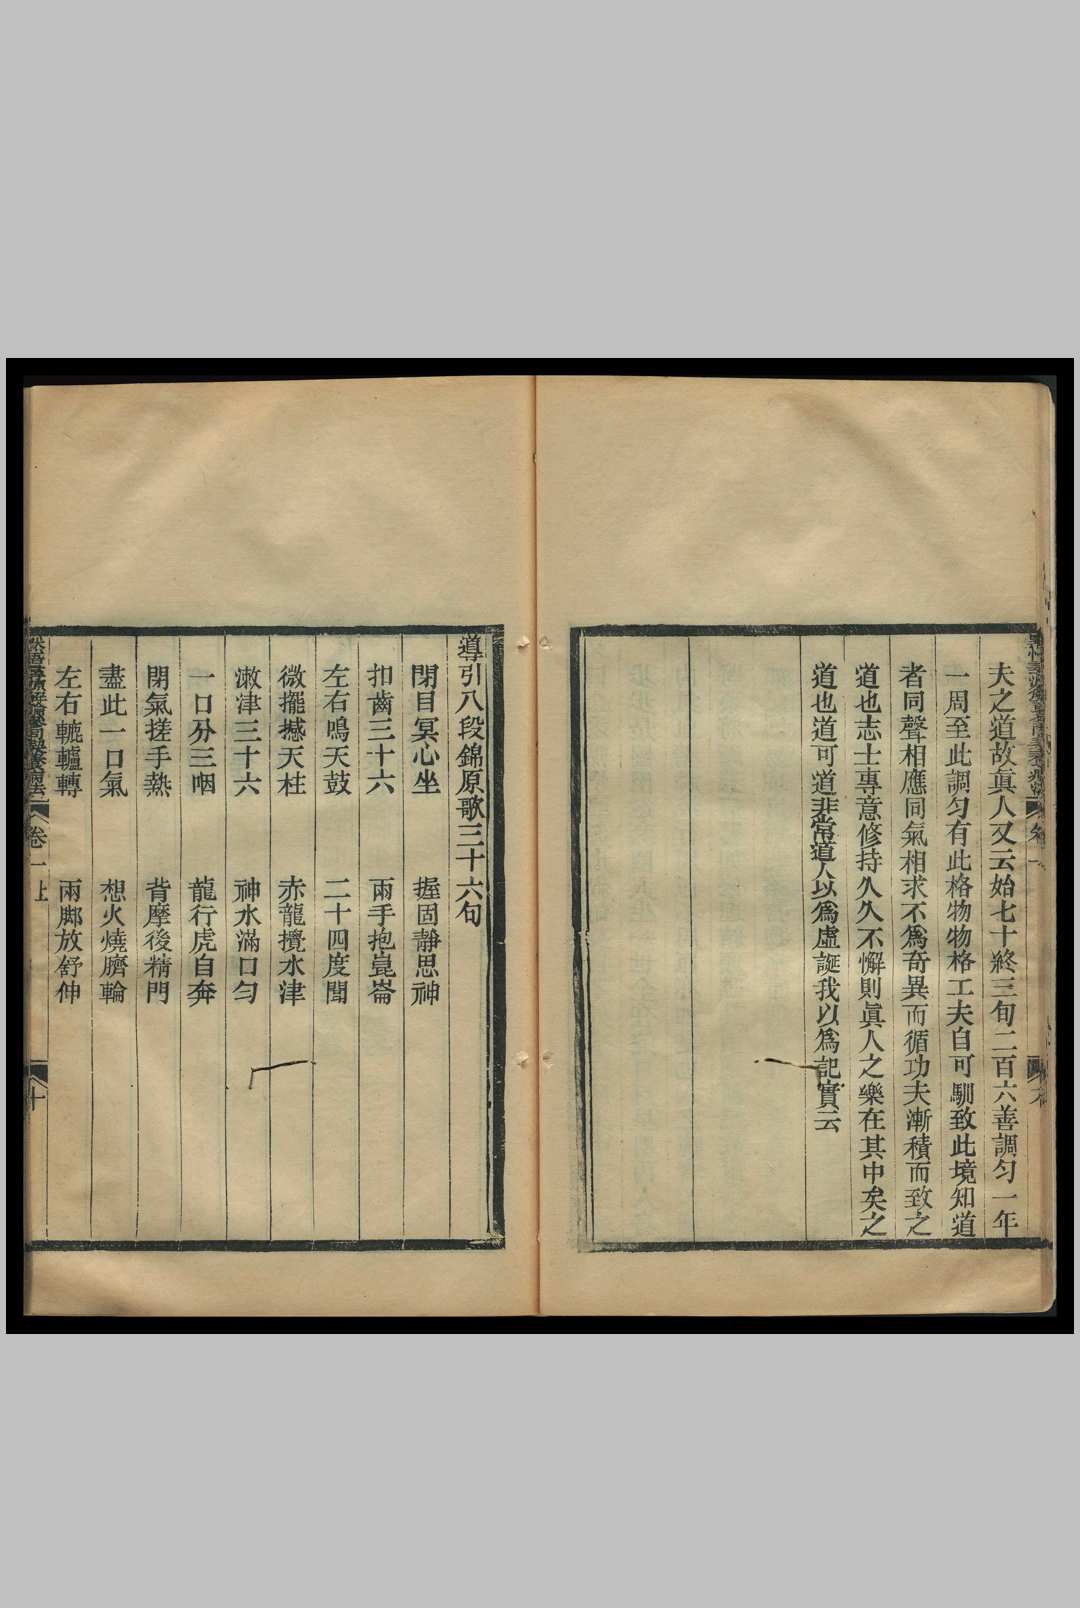 夫之道故眞人又云始七十終三旬二百六善調匀一年
一周至此調匀有此格物物格工夫自可馴致此境知道
者同聲相應同氣相求不爲奇異而循功夫漸積而致之
道也志士專意修持久久不懈則眞人之樂在其中矣之
道也道可道非常道人以爲虛誕我以爲記實云
導引八段錦原歌三十六句
閉目冥心坐 握固靜思神
扣齒三十六 兩手抱崑崙
左右鳴天鼓 二十四度聞
微擺撼天柱 赤龍攪水津
漱津三十六 神水滿口匀
一口分三咽 龍行虎自奔
閉氣搓手熱 背摩後精門
盡此一口氣 想火燒臍輪
左右轆轤轉 兩脚放舒伸
卷一上 十